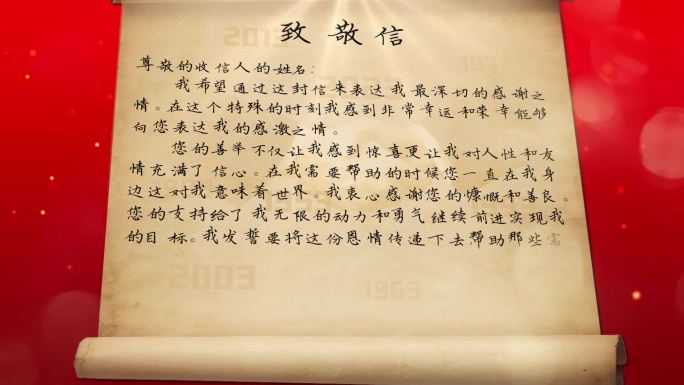 致敬信
尊敬的收信人的姓名：
我希望通过这封信来表达我最深切的感谢之
情。在这个特殊的时刻我感到非常幸运和荣幸能够
向您表达我的感激之情。
您的善举不仅让我感到惊喜更让我对人性和友
情充满了信心。在我需要帮助的时候您一直在我身
边这对我意味着世界。我衷心感谢您的慷慨和善良。
您的支持给了我无限的动力和勇气继续前进实现我
的目标。我发誓要将这份恩情传递下去帮助那些需
2013
2003
1963